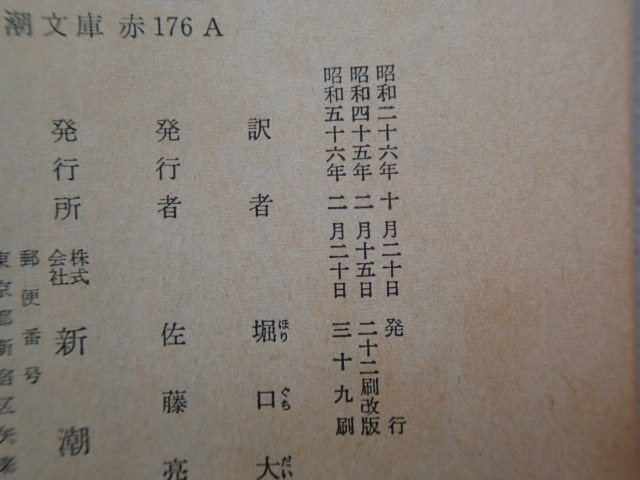 潮文庫 赤176A
昭和二十六年 十 月二十日 発 行
昭和四十五年 二 月十五日 二十二刷改版
昭和五十六年 二 月二十日 三十九刷
訳者 堀口大
ほり ぐち だい
発行者 佐藤亮
発行所 株式会社 新潮
郵便番号
東京都新宿区矢来